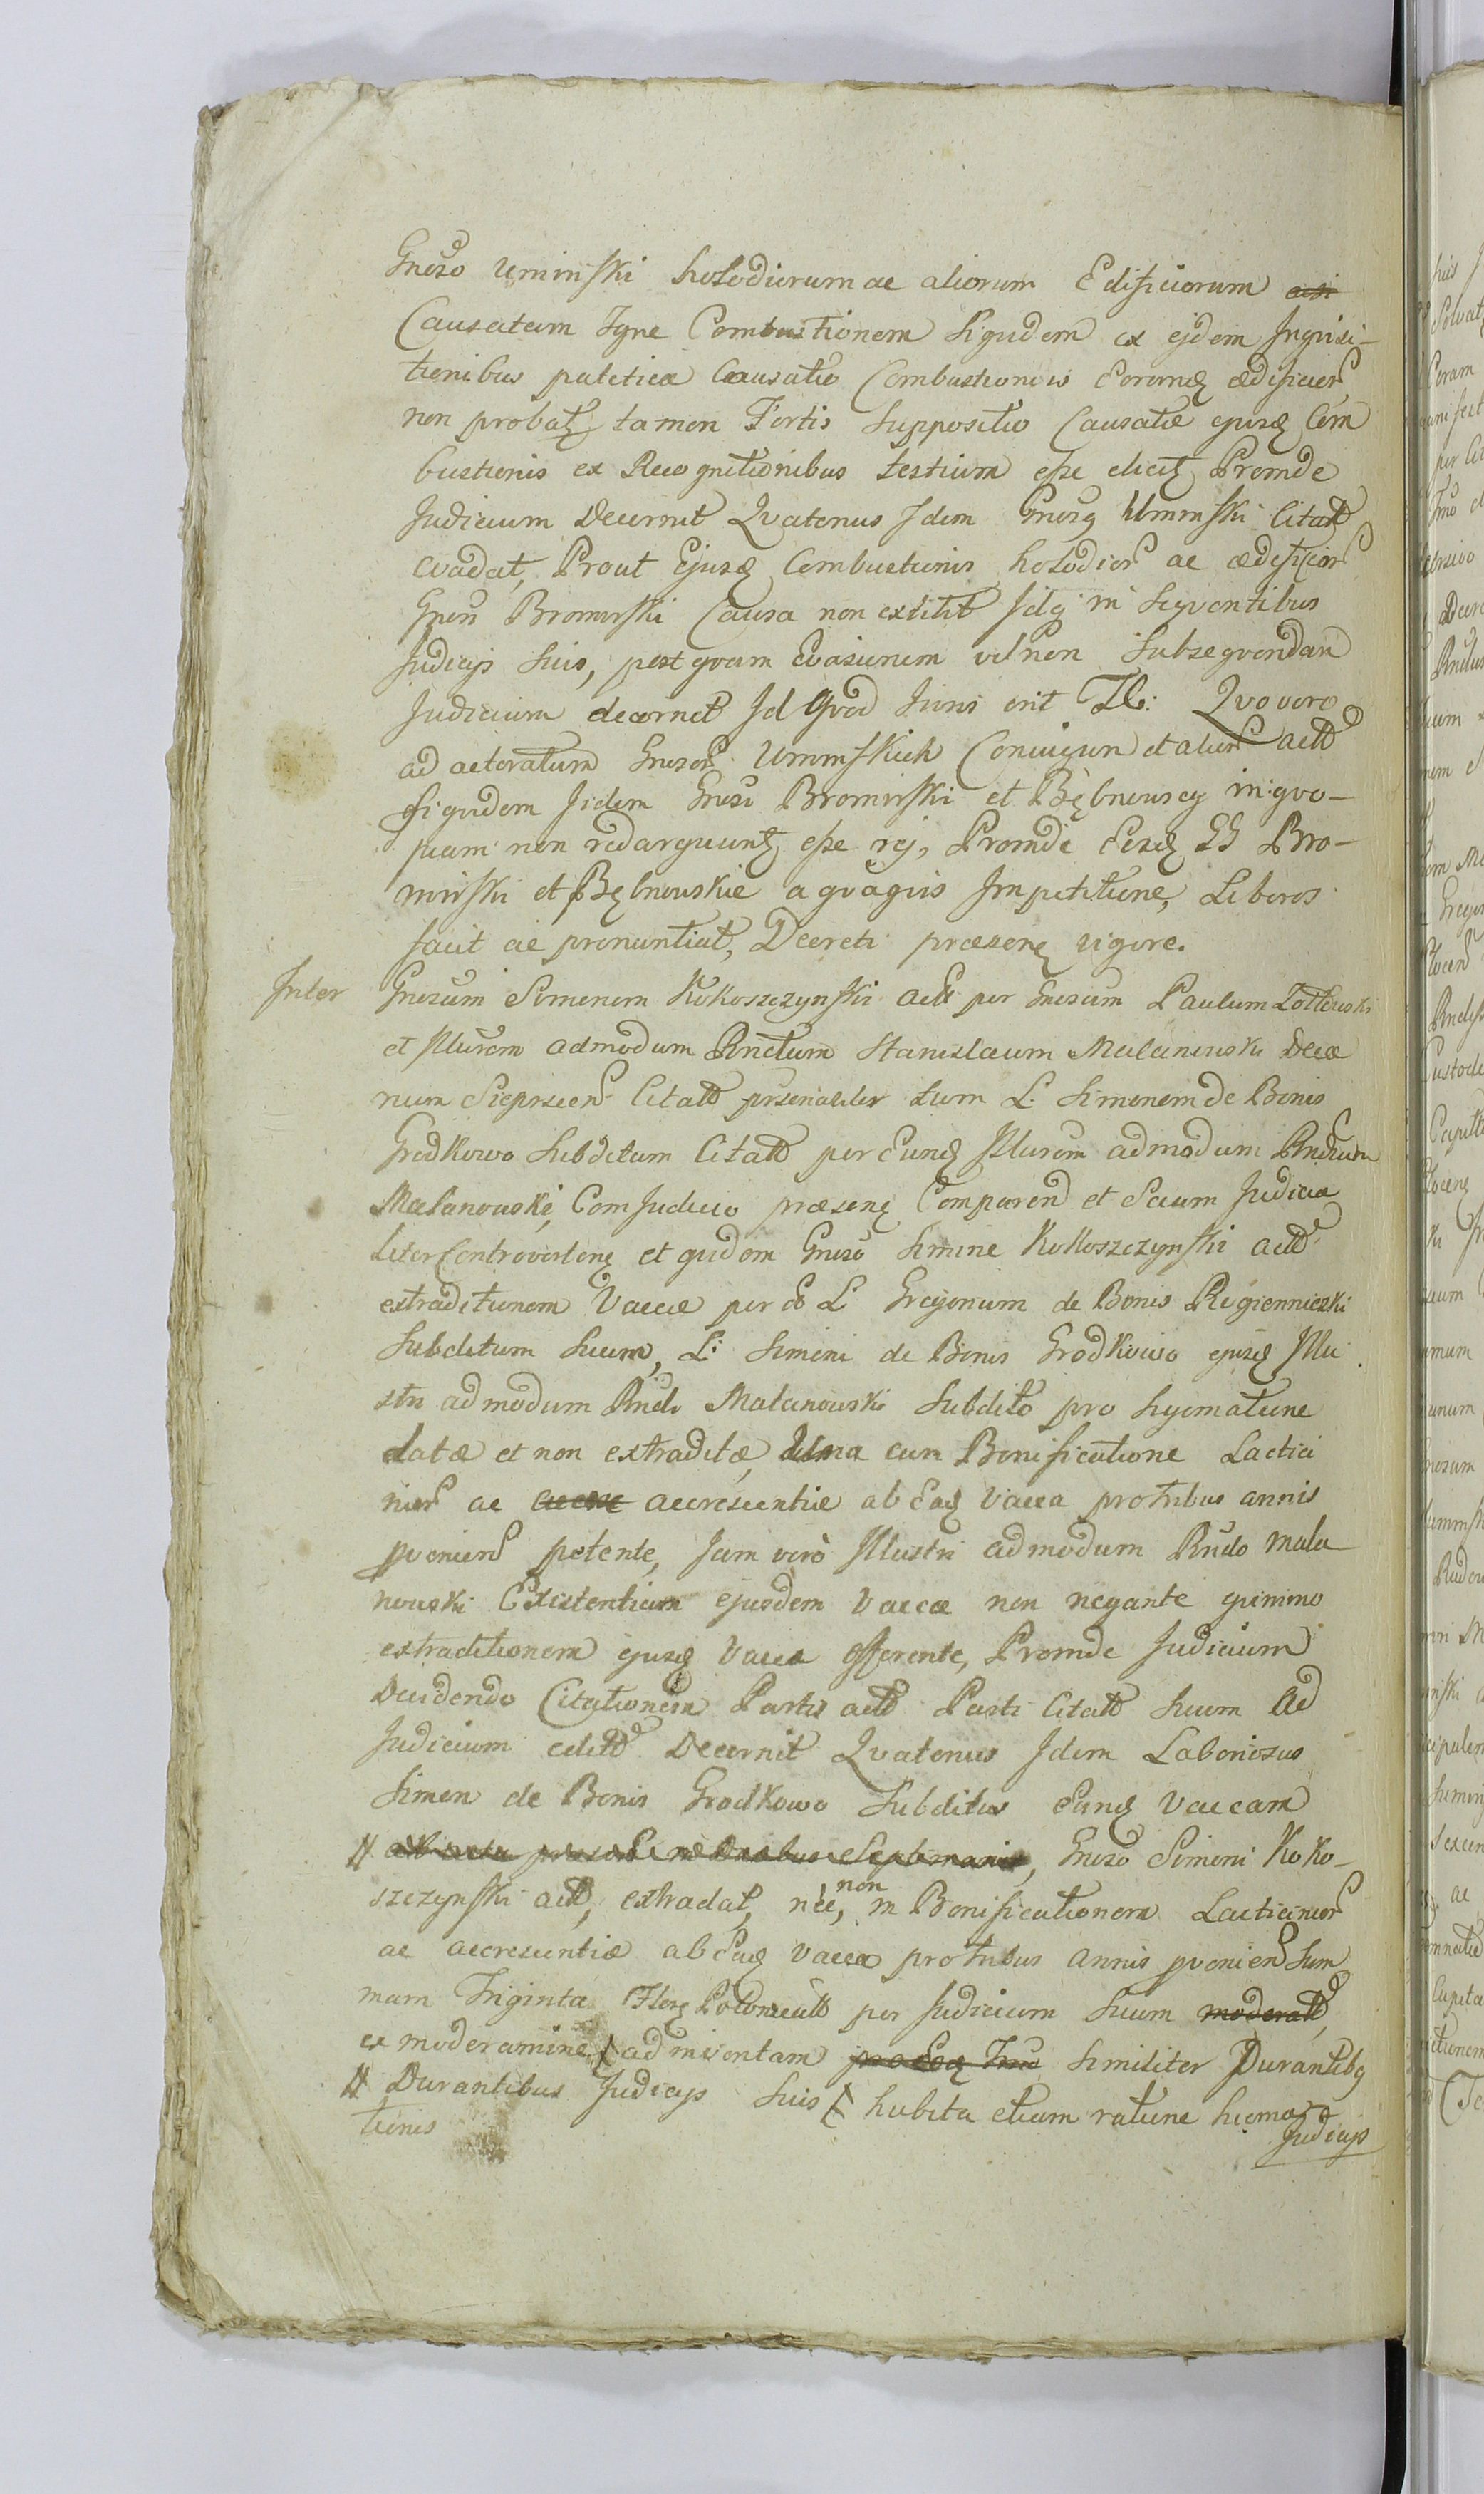 Gnoso Uminski hosodiorum ac aliorum Edificiorum
Causatam Igne Combustionem siquidem ex ejdem Inquisi-
tionibus paletica Causatio Combustionis Eorumq aedificior
non probatq tamen Fortis Suppositio Causatae ejusq Com
bustionis ex Recognitionibus testium esse elicitq Proinde
Judicium Decernit Qvatenus Idem Gnosq Uminski Citatt
evadat, Prout Ejusq Combustionis hosodior ac aedificior
Gnosi Bromirski Causa non extitit Idq in seqventibus
Judicijs suis, post qvam Evasionem vel non Subseqvendam
Judicium decernet Id Qvod Juris erit Qvo vero
ad actoratum Gnosor Uminskich Conjugum et alior actt
siquidem Iidem Gnosi Bromirski et Bębnowscy in qvo-
piam non redarguuntq esse rej, Proinde Eosq GG Bro-
mirski et Bębnowskie a qvaqvis Impetitione, Liberos
facit ac pronuntiat, Decreti praesenq vigore.
Inter Gnosum Simonem Kokoszczynski actt per Gnosum Paulum
et Illurem admodum Rndum Stanislaum Malanowski Deca
num Sieprscen Citatt psonaliter tum L. Simonem de Bonis
Grodkowo Subditum Citatt per Eunq Illurem admodum Rndum
Malanowski, Com Judicio praesenq Comparen et Secum Judicia
liter Controvertenq et quidem Gnoso Simone Kokoszczynski actt
extraditionem Vaccae per L Gregorium de Bonis
Subditum Suum, L: Simoni de Bonis Grodkowo ejusq Illu
stri admodum Rndi Malanowski Subdito pro hyematione
datae et non extraditae, Una cum Bonificatione Lactici
nior ac accrescentiae ab Eaq Vacca pro tribus annis
pvenien petente, Jam verò Illustri admodum Rndo Mala
nowski Existentiam ejusdem Vaccae non negante quinimo
extraditionem ejusq Vaccae offerente, Proinde Judicium
Decidendo Citationem Partis actt Parti Citatt Suum Ad
Judicium editt Decernit Qvatenus Idem Laboriosus
Simon de Bonis Grodkowo Subditus Eanq Vaccam
# , Gnoso Simoni Koko-
szczynski actt, extradat, nèc, non in Bonificationem Lacticinior
ac accrescentiae ab Eaq Vacca pro tribus annis pvenien Sum
mam Triginta Flor Polonicatt per Judicium Suum moderatt,
ex moderamine adinventam similiter Durantibq
# Durantibus Judicijs Suis habita etiam ratione hiema
tionis
Judicijs